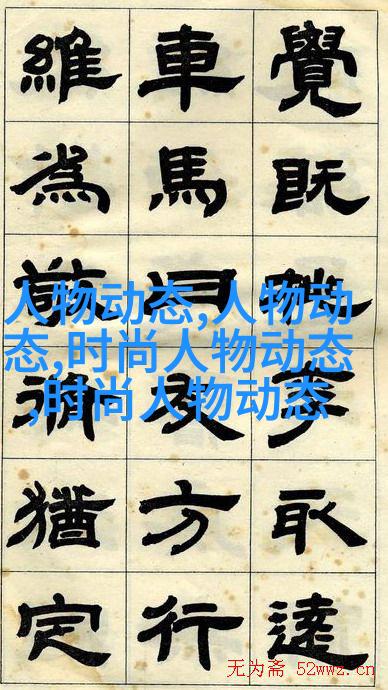 覺既取遠
車馬方行
維為猶定
人物动态,人物动
态,时尚人物动态
,时尚人物动态
无为斋 52wwz.cn